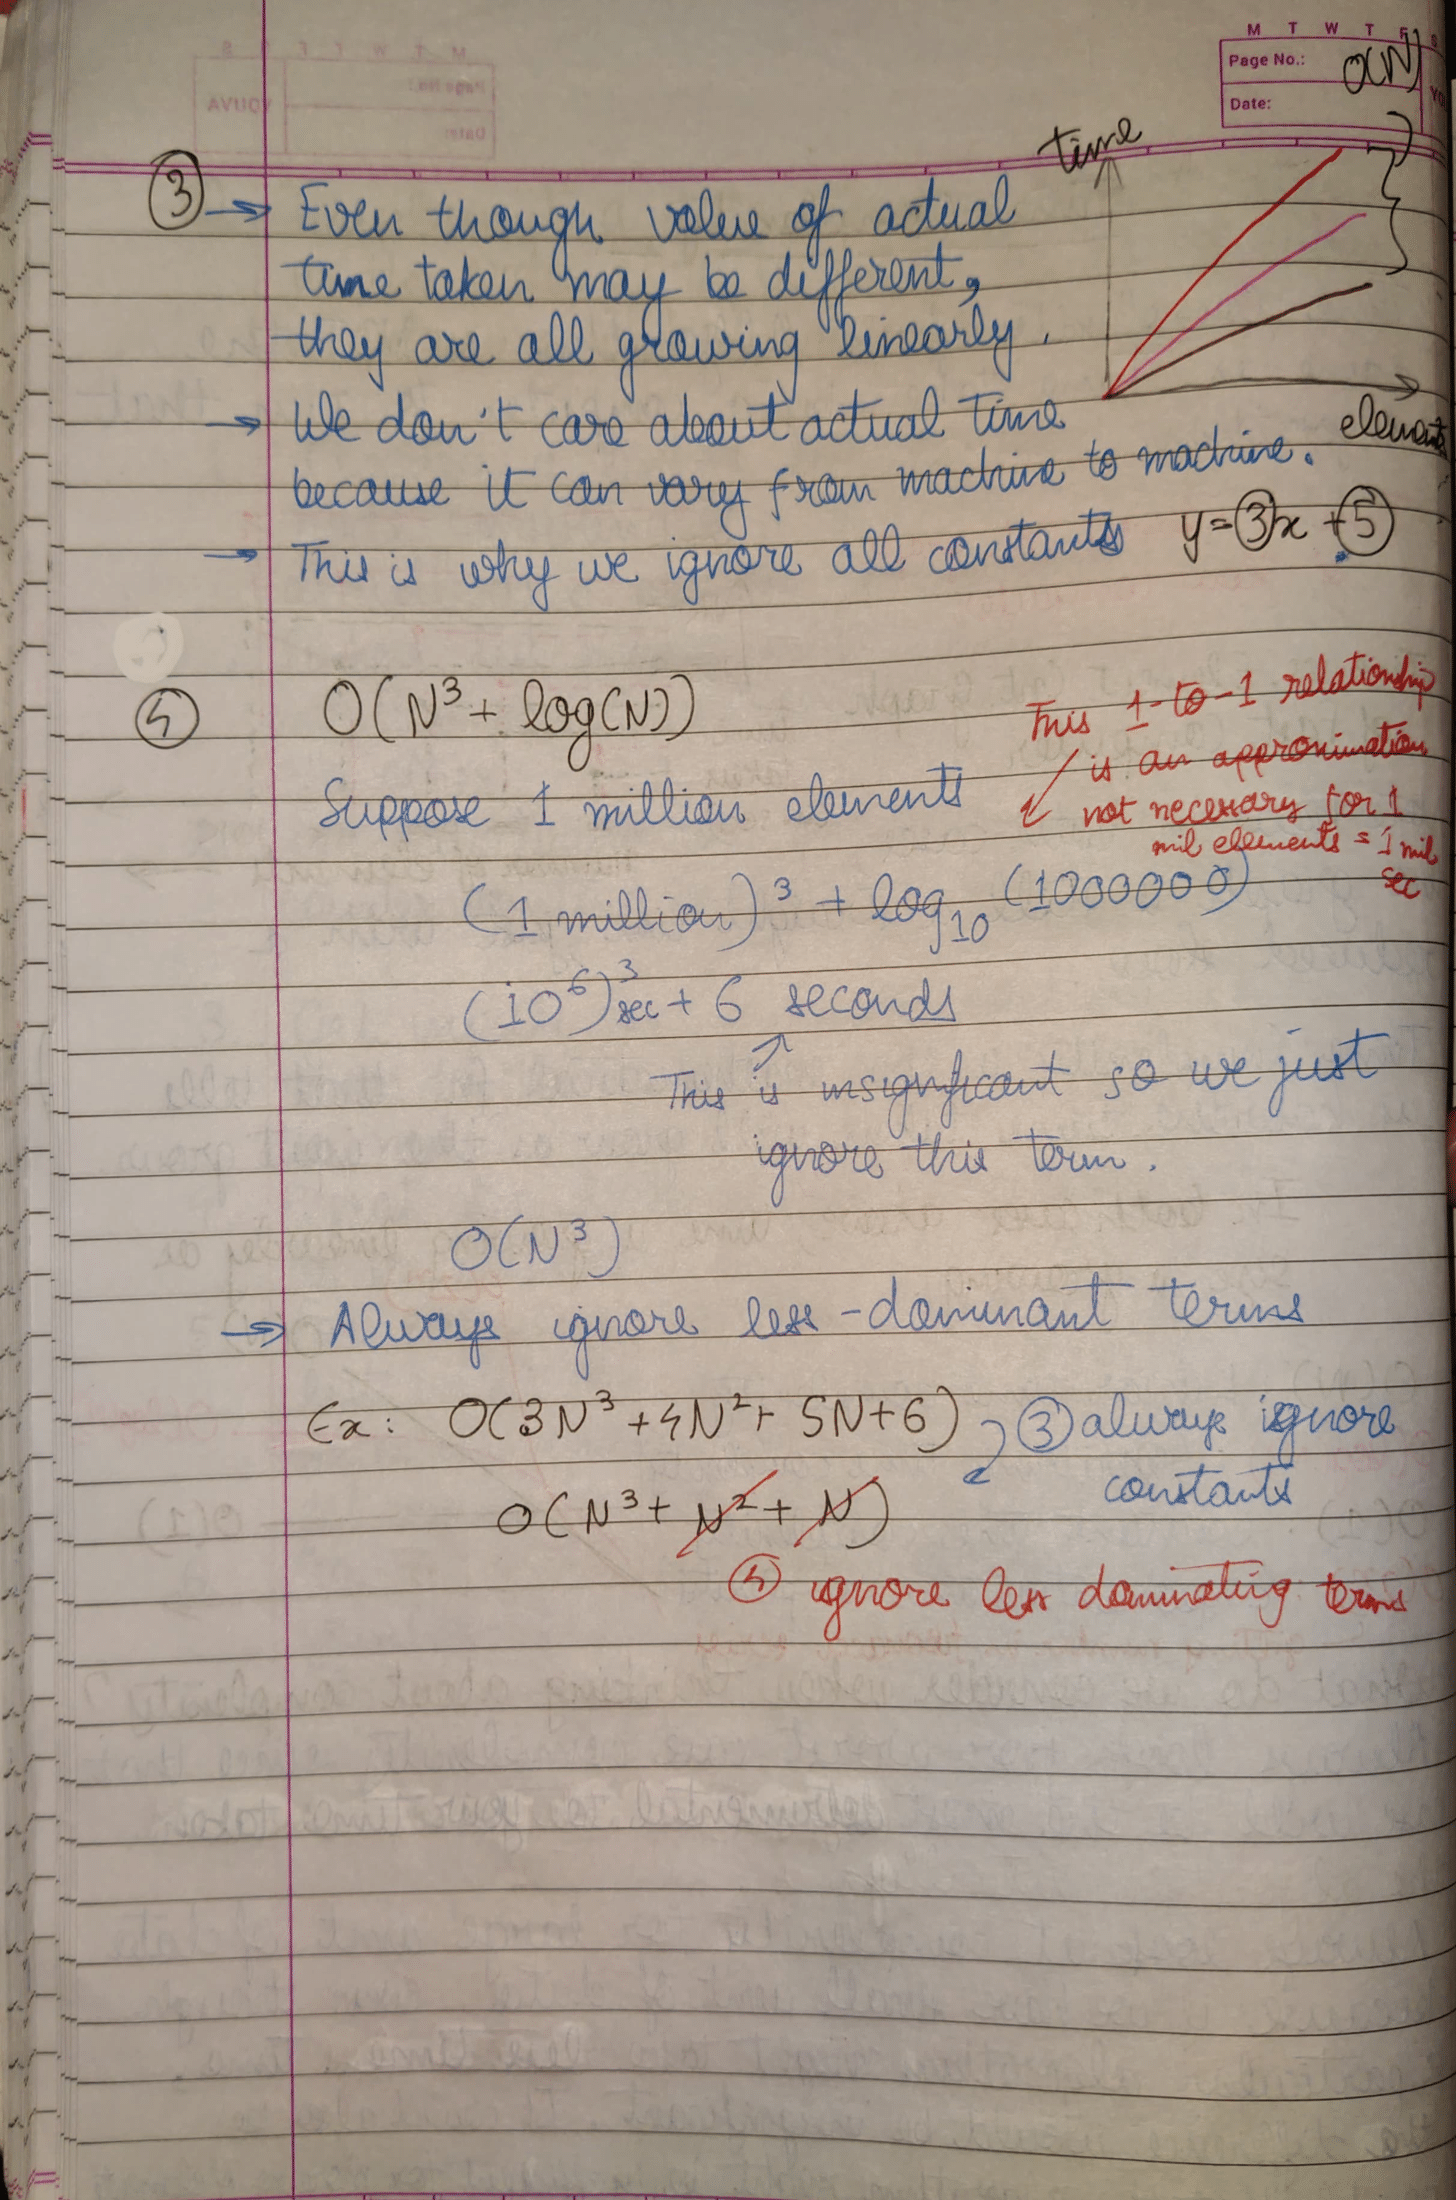 M T W T F S
Page No.:
Date:
O(N)
time
③ → Even though value of actual
time taken may be different,
they are all growing linearly.
→ We don't care about actual time
because it can vary from machine to machine.
element
→ This is why we ignore all constants y=3x+5
④ O(N³ + log(N))
This 1-to-1 relationship
is an approximation
not necessary for 1
mil elements = 1 mil
sec
Suppose 1 million elements
(1 million)³ + log₁₀ (1000000)
(10⁶)³ sec + 6 seconds
This is insignificant so we just
ignore this term.
O(N³)
→ Always ignore less-dominant terms
Ex: O(3N³ + 4N² + 5N + 6) ③ always ignore
constants
O(N³ + N² + N)
④ ignore less dominating terms